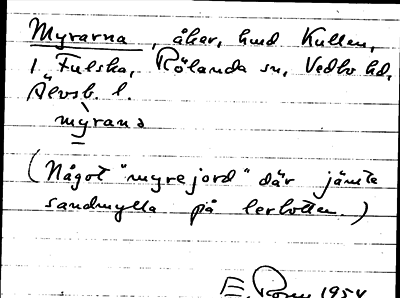 Myrarna, åker, hmd Kullen,
1 Fulska, Rölanda sn, Vedbo hd,
Älvsb. l.
mỳrana
(Något "myrejord" där jämte
sandmylla på lerbotten.)
E. 1954